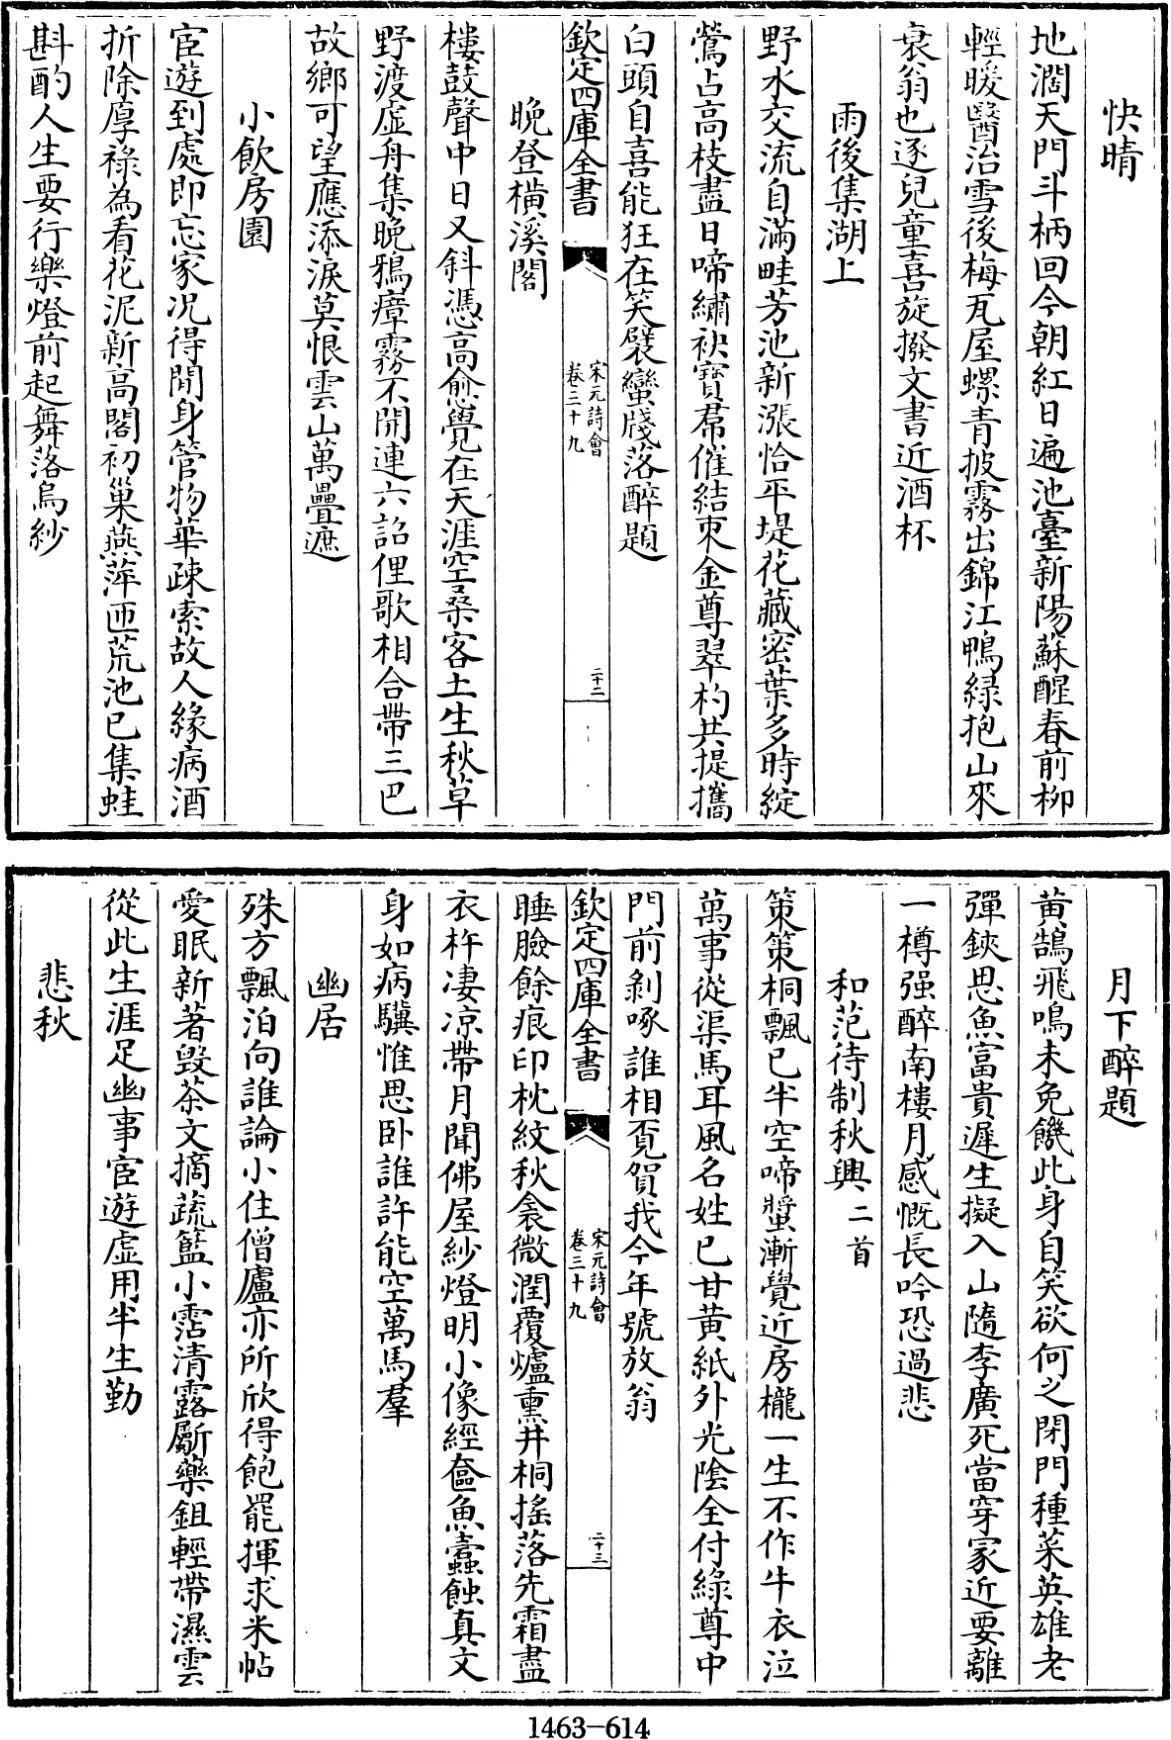 快晴
地濶天門斗柄回今朝紅日遍池臺新陽蘇醒春前柳
輕暖醫治雪後梅瓦屋螺青披霧出錦江鴨緑抱山來
衰翁也逐兒童喜旋撥文書近酒杯
雨後集湖上
野水交流自滿畦芳池新漲恰平堤花藏密葉多時綻
鶯占高枝盡日啼繡袂寶帬催結束金尊翠杓共提攜
白頭自喜能狂在笑襞蠻牋落醉題
欽定四庫全書
宋元詩會
卷三十九
二十二
晩登橫溪閣
樓鼓聲中日又斜憑高愈覺在天涯空桑客土生秋草
野渡虚舟集晚鴉瘴霧不開連六詔俚歌相合帶三巴
故鄉可望應添淚莫恨雲山萬疊遮
小飲房園
宦遊到處即忘家况得閒身管物華疎索故人緣病酒
折除厚祿為看花泥新高閣初巢燕萍匝荒池已集蛙
斟酌人生要行樂燈前起舞落烏紗
月下醉題
黃鵠飛鳴未免饑此身自笑欲何之閉門種菜英雄老
彈鋏思魚富貴遲生擬入山隨李廣死當穿冢近要離
一樽强醉南樓月感慨長吟恐過悲
和范待制秋興二首
策策桐飄已半空啼螿漸覺近房櫳一生不作牛衣泣
萬事從渠馬耳風名姓已甘黄紙外光陰全付緑尊中
門前剝啄誰相覓賀我今年號放翁
欽定四庫全書
宋元詩會
卷三十九
二十三
睡臉餘痕印枕紋秋衾微潤覆爐熏井桐搖落先霜盡
衣杵凄凉帶月聞佛屋紗燈明小像經奩魚蠹蝕真文
身如病驥惟思卧誰許能空萬馬羣
幽居
殊方飄泊向誰論小住僧廬亦所欣得飽罷揮求米帖
愛眠新著毁茶文摘蔬籃小霑清露斸藥鉏輕帶濕雲
從此生涯足幽事宦遊虚用半生勤
悲秋
1463-614